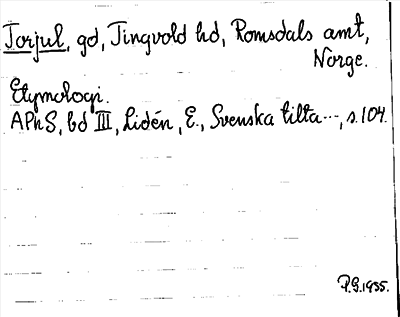 Torjul, gd, Tingvold hd, Romsdals amt,
Norge.
Etymologi.
APhS, bd III, Lidén, E., Svenska tilta..., s.104.
P.G.1955.